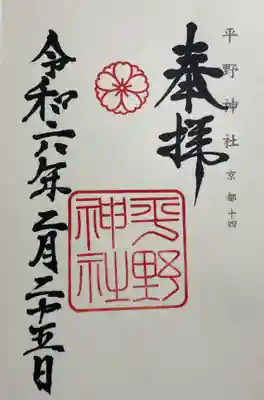 平野神社 京都十四
奉拝
平野神社
令和六年二月二十五日